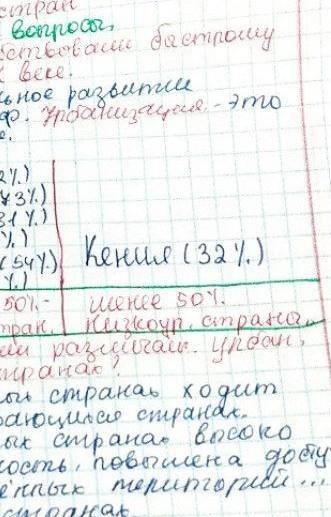 стран
вопросы
бствовали бастрому
веке.
ьное развитии
Урбанизация - это
2%)
73%)
31%)
%)
(54%) Кения (32%)
%)
50%- менее 50%.
тран. низкоур. страна.
различат. урбан,
транах?
странах ходит
ающимся странах.
ых странах высоко
ность, повышена досту
ённых територий...
странах